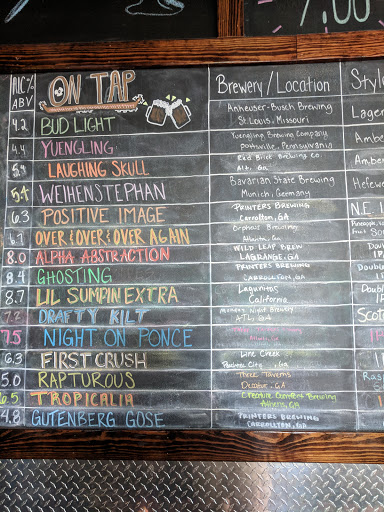 7.00
ALC%
ABV
ON TAP
Brewery / Location
Styl
4.2 BUD LIGHT Anheuser-Busch Brewing
St. Louis, Missouri
Lager
4.4 YUENGLING Yuengling Brewing Company
Pottsville, Pennsylvania
Ambe
5.4 LAUGHING SKULL Red Brick Brewing Co.
Atl. Ga
Ambe
5.4 WEIHENSTEPHAN Bavarian State Brewing
Munich, Germany
Hefew
6.3 POSITIVE IMAGE PRINTERS BREWING
Carrollton, GA
N.E I
6.7 OVER & OVER & OVER AGAIN Orpheus Brewing
Atlanta, Ga
8.0 ALPHA ABSTRACTION WILD LEAP BREW
LAGRANGE, GA
Double
IPA
8.4 GHOSTING PRINTERS BREWING
CARROLLTON, GA
Doub
8.7 LIL SUMPIN EXTRA Lagunitas
California
Doubl
IP
7.2 DRAFTY KILT Monday Night Brewery
ATL GA
Scot
7.5 NIGHT ON PONCE
6.3 FIRST CRUSH Line Creek
Peachtree City, Ga
5.0 RAPTUROUS Three Taverns
Decatur, GA
Rasp
6.5 TROPICALIA Creature Comfort Brewing
Athens, GA
4.8 GUTENBERG GOSE PRINTERS BREWING
CARROLLTON, GA